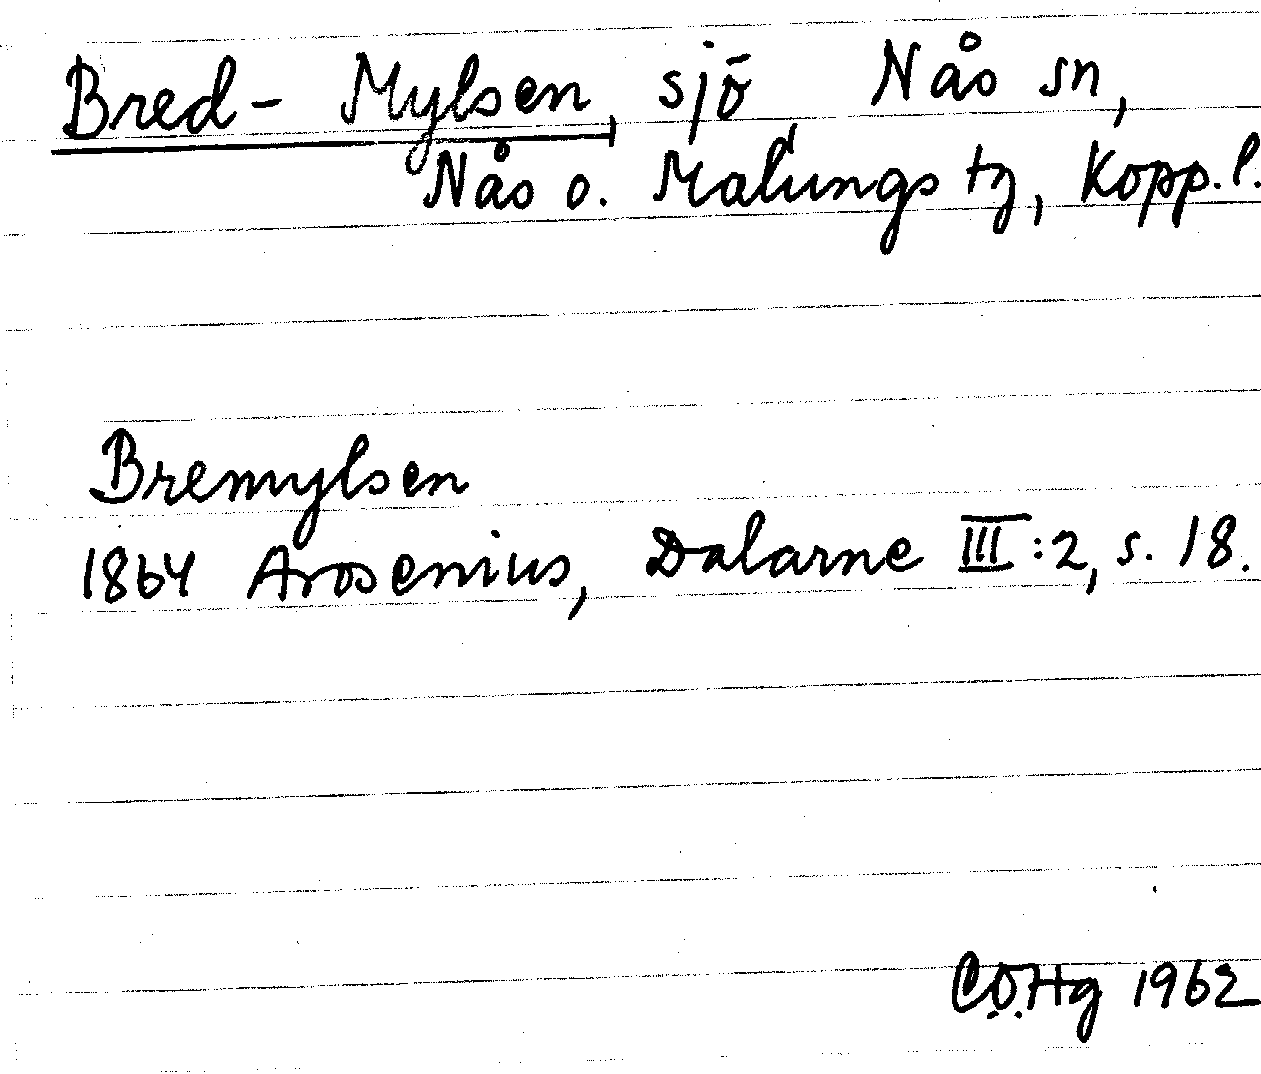 Bred-Mylsen, sjö, Nås sn,
Nås o. Malungs tg, Kopp.l.
Bremylsen
1864 Arosenius, Dalarne III:2, s. 18.
C.O.Hg 1962